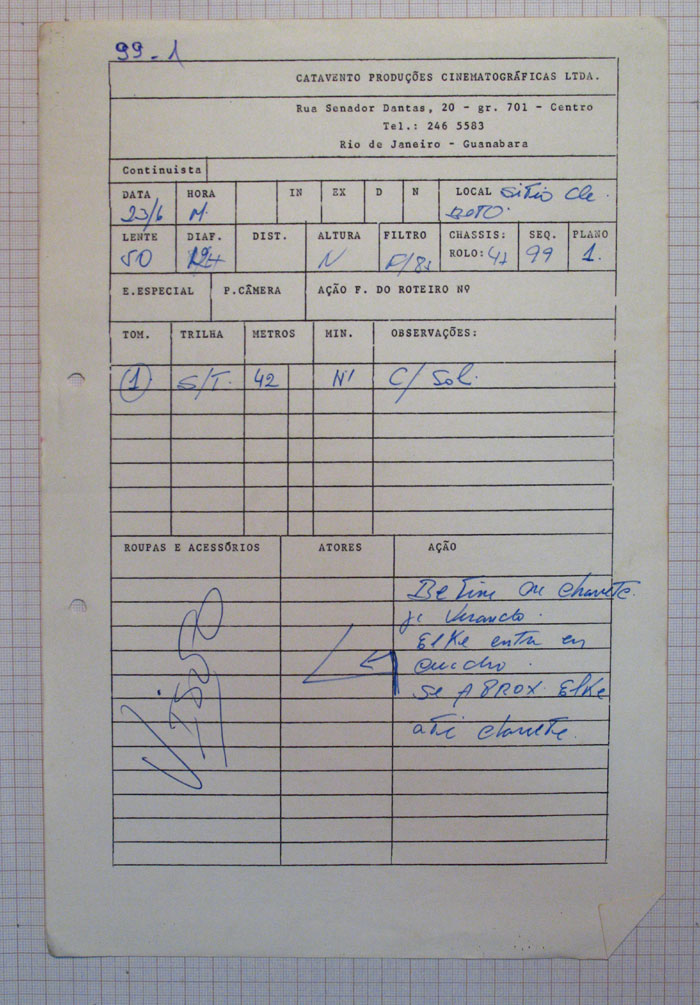 99-1
CATAVENTO PRODUÇÕES CINEMATOGRÁFICAS LTDA.
Rua Senador Dantas, 20 - gr. 701 - Centro
Tel.: 246 5583
Rio de Janeiro - Guanabara
Continuista
DATA HORA IN EX D N LOCAL Sitio de
23/6 M. BETO.
LENTE DIAF. DIST. ALTURA FILTRO CHASSIS: SEQ. PLANO
50 N ROLO: 99 1.
E.ESPECIAL P.CÂMERA AÇÃO F. DO ROTEIRO Nº
TOM. TRILHA METROS MIN. OBSERVAÇÕES:
1 S/T. 42 N1 C/ Sol.
ROUPAS E ACESSÓRIOS ATORES AÇÃO
charrete
Elke entra em
quadro.
se APROX. Elke
até charrete.